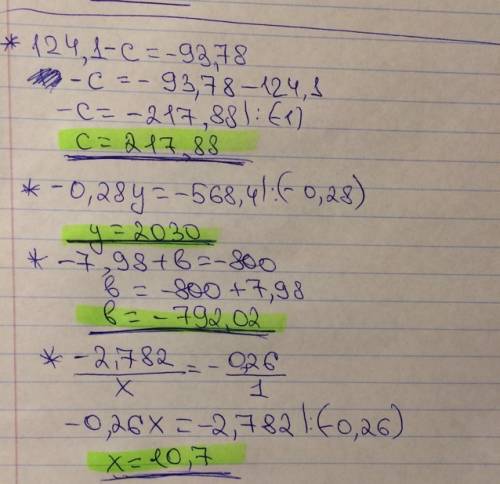 * 124,1-c=-93,78
-c=-93,78-124,1
-c=-217,88|:(-1)
c=217,88
* -0,28y=-568,4|:(-0,28)
y=2030
* -7,98+в=-800
в=-800+7,98
в=-792,02
* -2,782/x=-0,26/1
-0,26x=-2,782|:(-0,26)
x=10,7